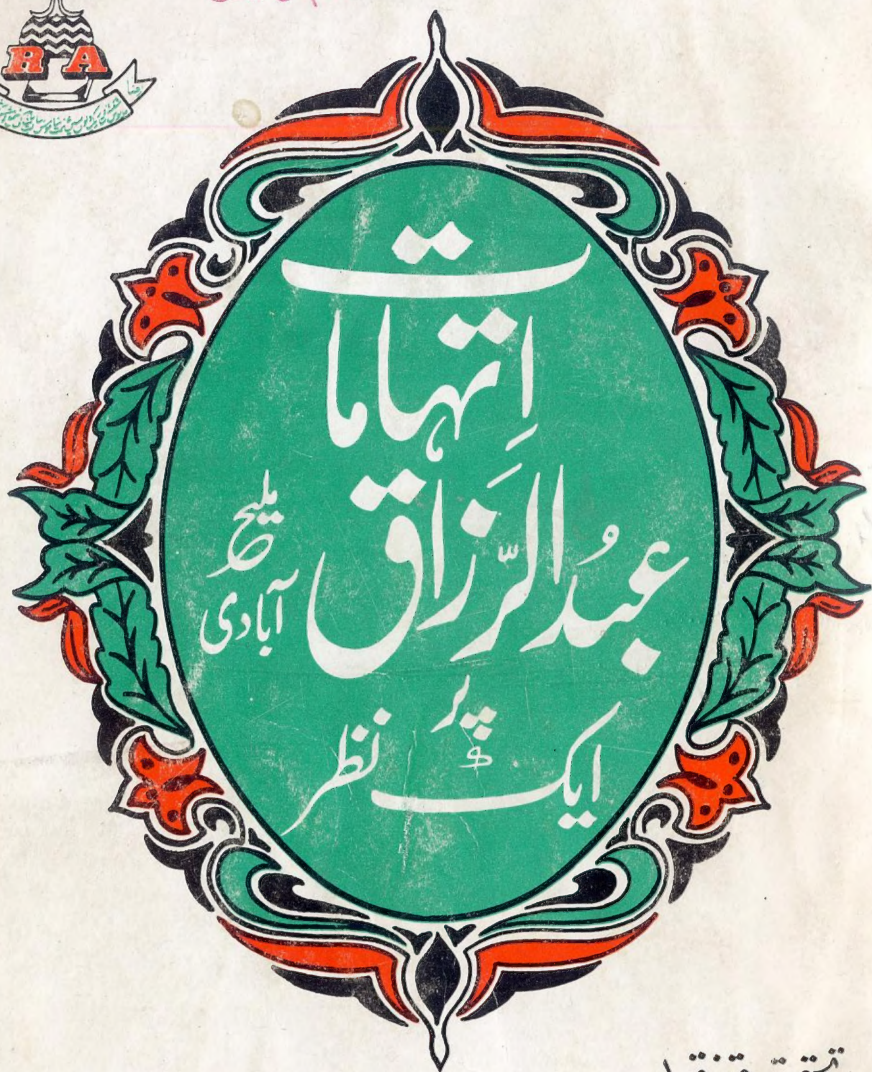 R A
رضا
اتہامات
عبدُالرّزَاق
ملیح
آبادی
پر
ایک نظر